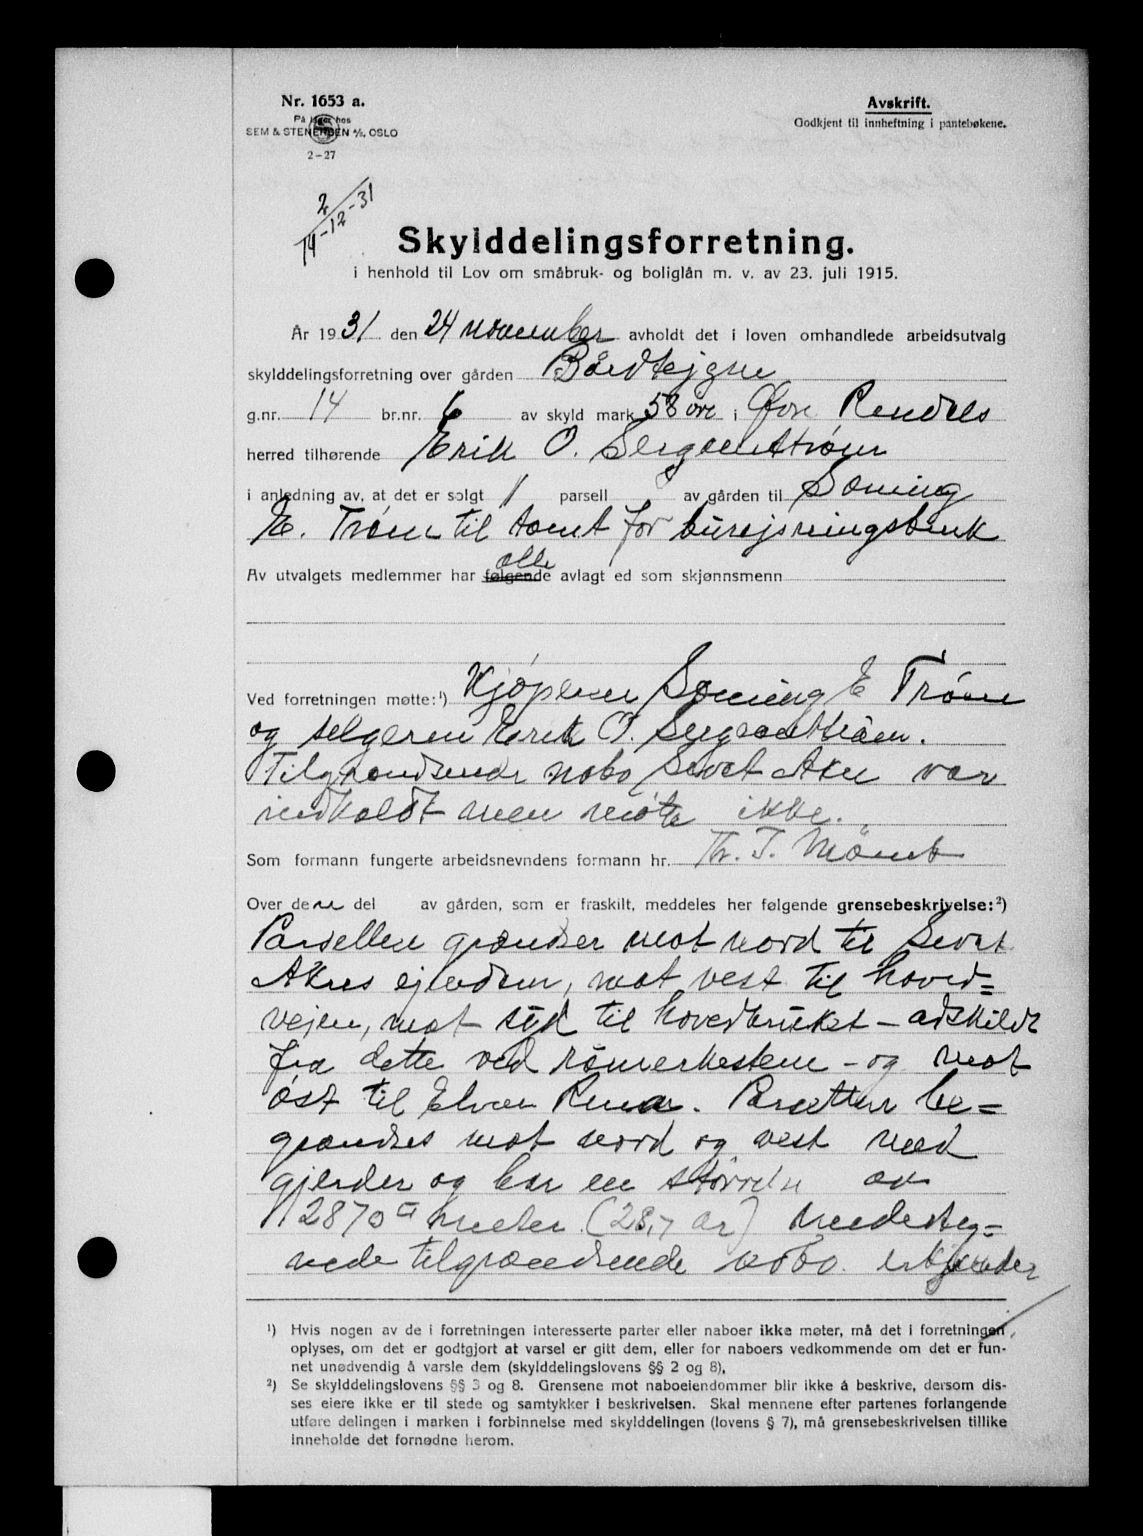 Nr. 1653 a.
På lager hos
SEM & STENERSEN A/S, OSLO
2-27
Avskrift.
Godkjent til innheftning i pantebøkene.
2
14-12-31
Skylddelingsforretning.
i henhold til Lov om småbruk- og boliglån m. v. av 23. juli 1915.
År 1931 den 24 november avholdt det i loven omhandlede arbeidsutvalg
skylddelingsforretning over gården
g.nr. 14 br.nr. 6 av skyld mark 58 øre i Øvre Rendal
herred tilhørende Erik O. Sergeanttrøen
i anledning av, at det er solgt 1 parsell av gården til
E. Trøen til tomt for bureisningsbruk
Av utvalgets medlemmer har følgende alle avlagt ed som skjønnsmenn
Ved forretningen møtte:¹) Kjøperen E Trøen
og selgeren Erik O. Sergeanttrøen.
Tilgrændsende nabo Sivert Aker var
indkaldt men møtte ikke.
Som formann fungerte arbeidsnevndens formann hr. Th. T.
Over denne del av gården, som er fraskilt, meddeles her følgende grensebeskrivelse:²)
Parsellen grændser mot nord til Sivert
Akres ejendom, mot vest til hoved=
vejen, mot syd til hovedbruket - adskildt
fra dette ved - og mot
øst til Elven Rena. Parsellen be=
grændses mot nord og vest med
gjerder og har en størrelse av
2870 □ meter (28,7 ar) Undertegnede
tilgrændsende nabo erkjender
¹) Hvis nogen av de i forretningen interesserte parter eller naboer ikke møter, må det i forretningen
oplyses, om det er godtgjort at varsel er gitt dem, eller for naboers vedkommende om det er fun-
net unødvendig å varsle dem (skylddelingslovens §§ 2 og 8).
²) Se skylddelingslovens §§ 3 og 8. Grensene mot naboeiendommer blir ikke å beskrive, dersom dis-
ses eiere ikke er til stede og samtykker i beskrivelsen. Skal mennene efter partenes forlangende
utføre delingen i marken i forbinnelse med skylddelingen (lovens § 7), må grensebeskrivelsen tillike
inneholde det fornødne herom.